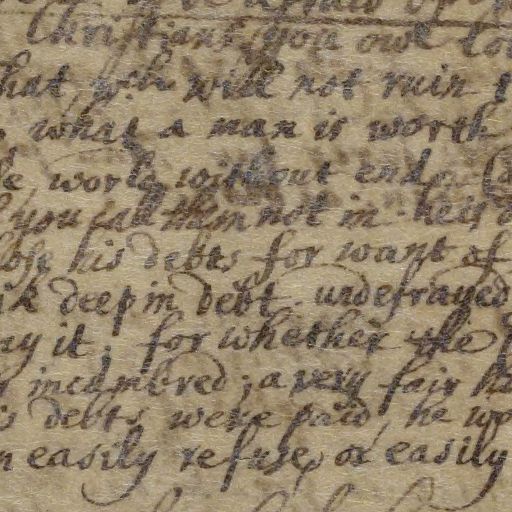 Christians, you owe
hat wch will not ruin
what a man is worth
world without end
you call them not in
his debts for want of
deep in debt. undefrayed
it. for whether the
incumbred; a very fair
debts were paid, he wo
easily refuse, or easily